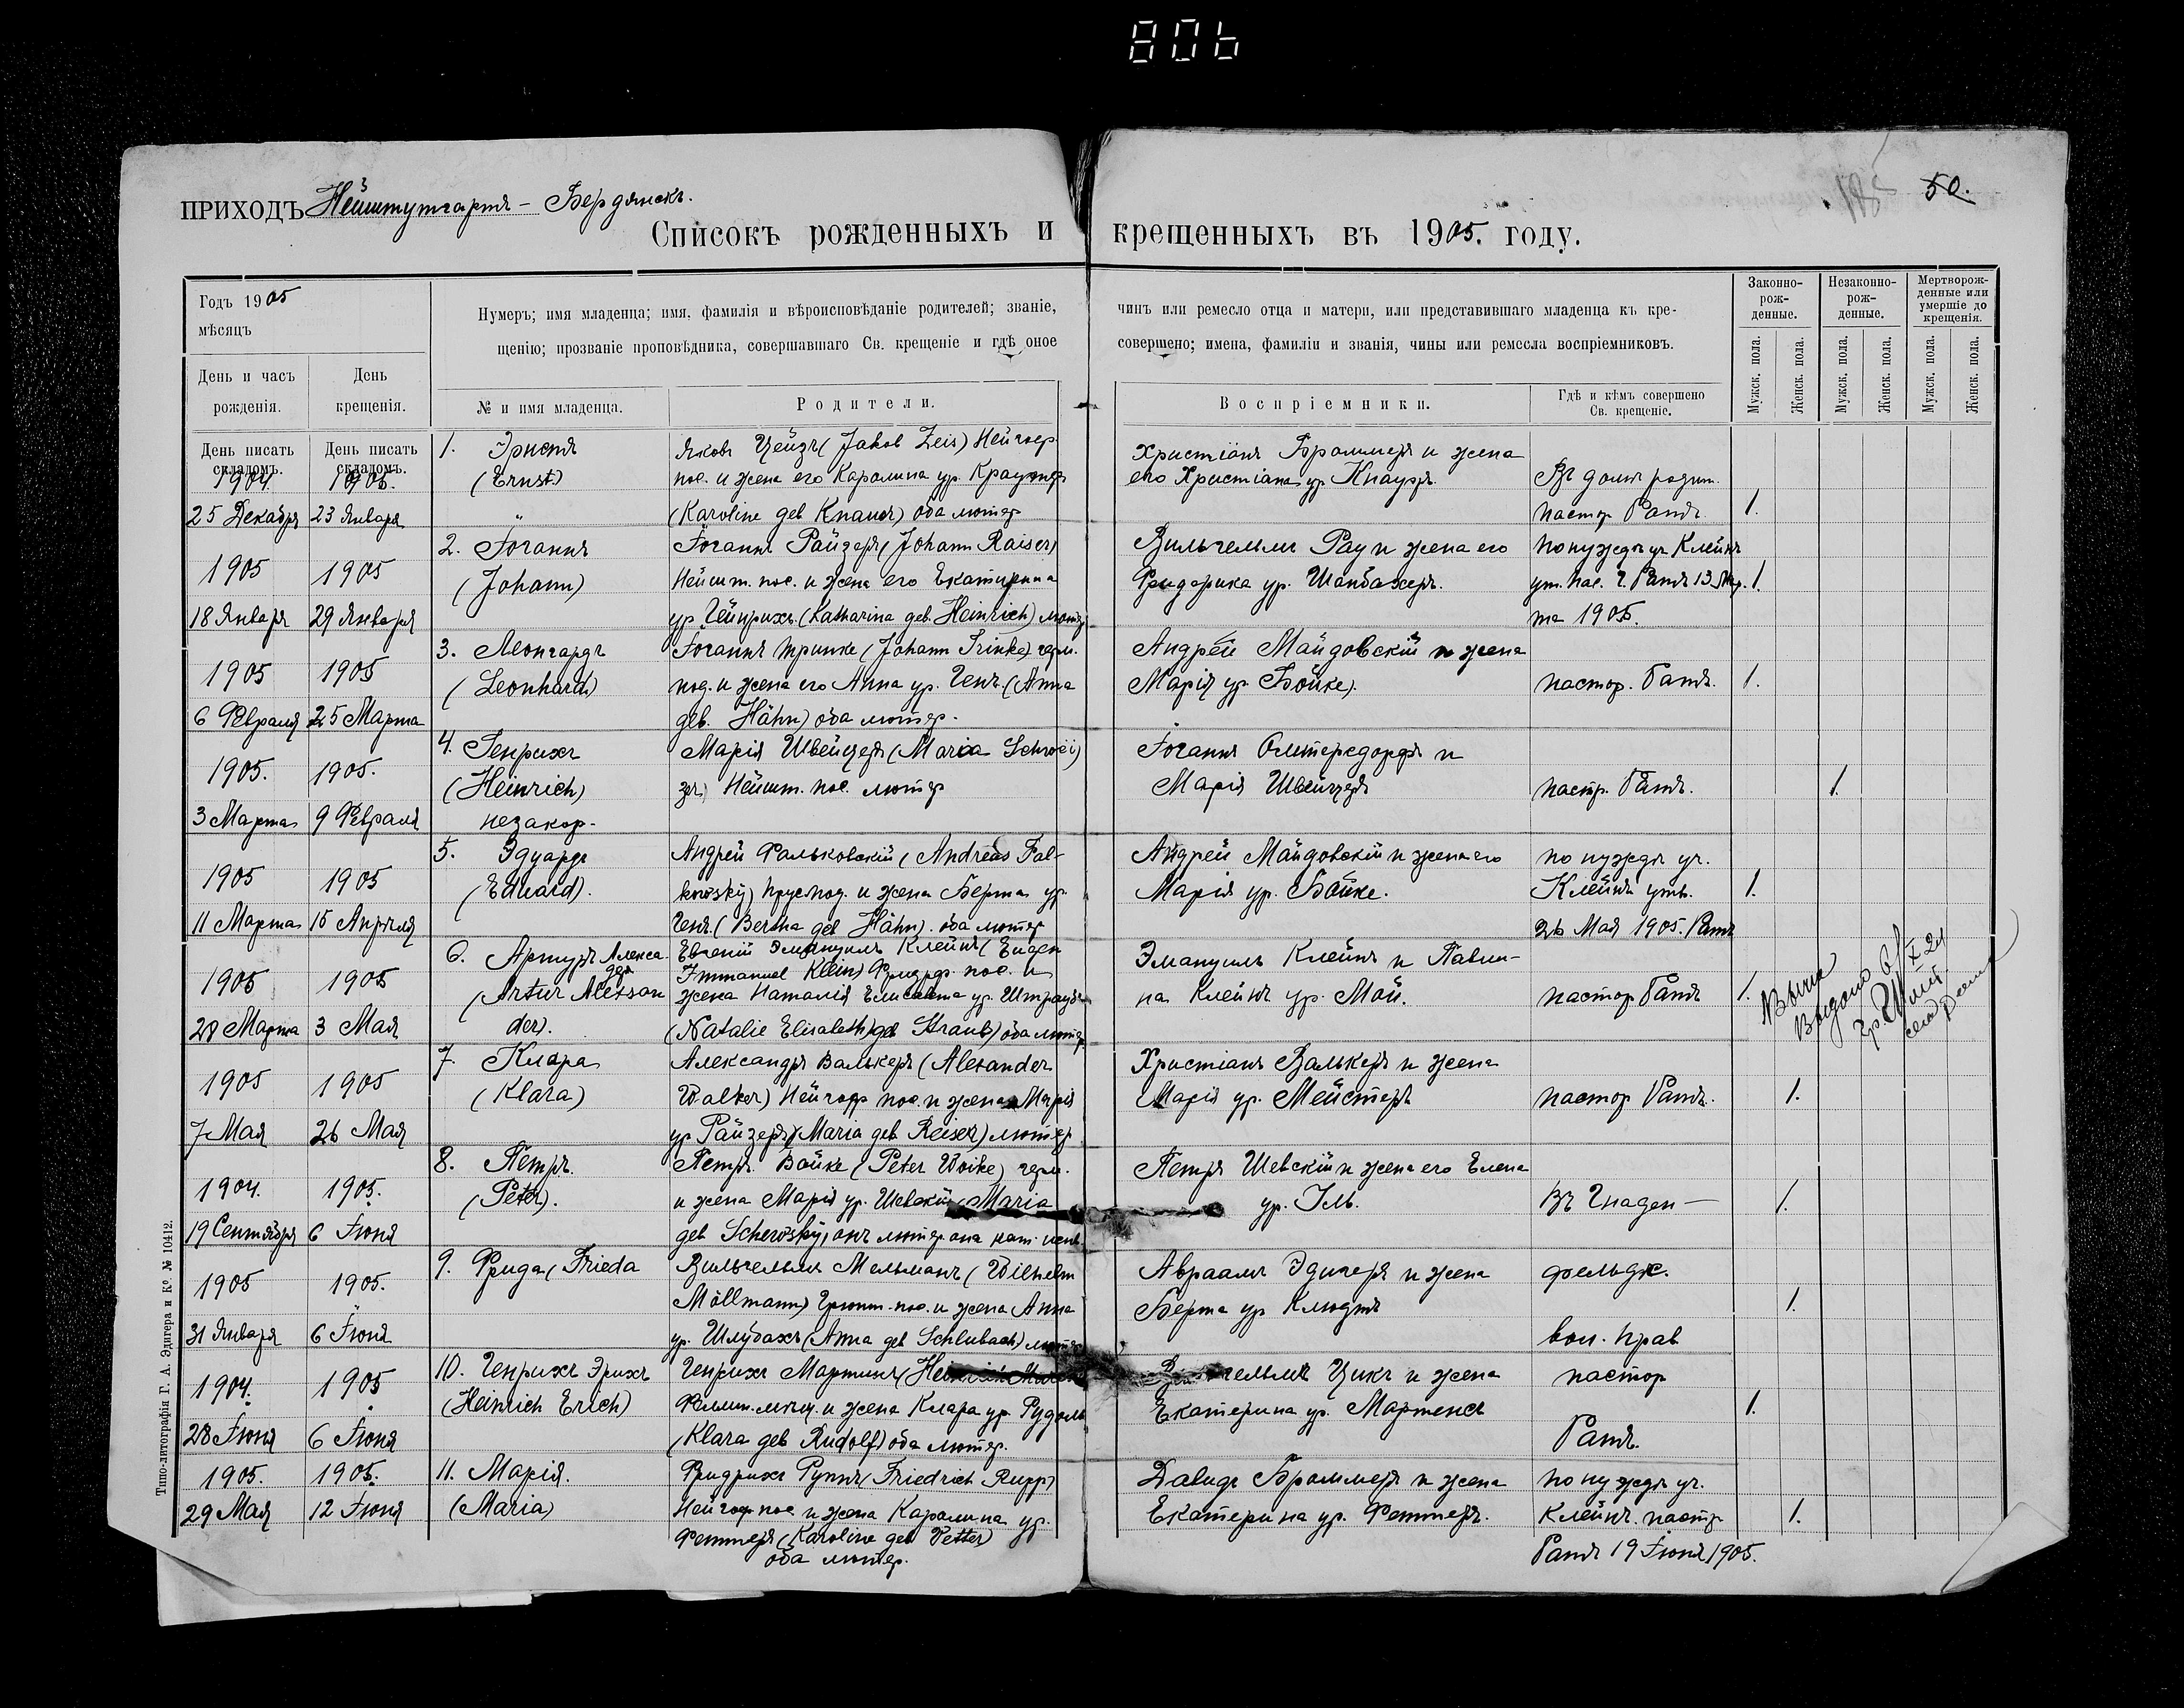 806
ПРИХОДЪ Нейштутгартъ - Бердянскъ.
50.
Списокъ рожденныхъ и крещенныхъ въ 1905. году.
Годъ 1905
мѣсяцъ
День и часъ рожденія.
День крещенія.
Нумеръ; имя младенца; имя, фамилія и вѣроисповѣданіе родителей; званіе, чинъ или ремесло отца и матери, или представившаго младенца къ кре-
щенію; прозваніе проповѣдника, совершавшаго Св. крещеніе и гдѣ оное совершено; имена, фамиліи и званія, чины или ремесла воспріемниковъ.
№ и имя младенца.
Родители.
Воспріемники.
Гдѣ и кѣмъ совершено Св. крещеніе.
Законно-рож-денные.
Незаконно-рож-денные.
Мертворож-денные или умершіе до крещенія.
Мужск. пола.
Женск. пола.
Мужск. пола.
Женск. пола.
Мужск. пола.
Женск. пола.
День писать складомъ.
День писать складомъ.
1904. 1905.
25 Декабря 23 Января
1. Эрнстъ
(Ernst)
Яковъ Цейзъ (Jakob Zeis) Нейгоф.
пос. и жена его Каролина ур.
(Karoline geb Knauer) оба лютер
Христіанъ Броммеръ и жена
его Христіана ур. Кнауэръ.
Въ домѣ родит.
пастор Гантъ
1.
1905 1905
18 Января 29 Января
2. Іоганнъ
(Johann)
Іоганнъ Райзеръ (Johann Raiser)
Нейшт. пос. и жена его Екатерина
ур. Гейнрихъ (Katharina geb. Heinrich) лютер
Вильгельмъ Рау и жена его
Фридерика ур. Шанбахеръ.
по нуждѣ уч Клейнъ
ут. пас. Гантъ 13 Мар.
та 1905.
1.
1905 1905
6 Февраля 25 Марта
3. Леонгардъ
(Leonhard)
Іоганнъ Тринке (Johann Trinke) герм.
под. и жена его Анна ур. Генъ (Anna
geb. Hähn) оба лютер.
Андрей Майдовскій и жена
Марія ур. Бойке).
пастор. Гантъ.
1.
1905. 1905.
3 Марта 9 Февраля
4. Генрихъ
(Heinrich)
незакор-
Марія Швейцеръ (Maria Schwei)
zer) Нейшт. пос. лютер
Іоганнъ Олтерсдорфъ и
Марія Швейцеръ
пастр. Гантъ.
1.
1905 1905
11 Марта 15 Апрѣля
5. Эдуардъ
(Eduard).
Андрей Фальковскій (Andreas Fal-
kowsky) прус. под. и жена Берта ур.
Генъ. (Bertha geb Hähn). оба лютер
Андрей Майдовскій и жена его
Марія ур. Бойке.
по нуждѣ уч.
Клейнъ утв.
26 Мая 1905. Гантъ
1.
1905 1905
28 Марта 3 Мая
6. Артуръ Алекса
дръ
(Artur Alexan
der).
Евгеній Эмануилъ Клейнъ (Eugen
Immanuel Klein) Фридрф. пос. и
жена Наталія Елисавета ур. Штраубъ
(Natalie Elisabeth) geb Straub) оба лютер.
Эмануилъ Клейнъ и Павли-
на Клейнъ ур. Май.
пастор Гантъ
1.
7 Мая 26 Мая
1905 1905
7. Клара
(Klara)
Александръ Валькеръ (Alexander
Walker) Нейгофр пос. и жена Марія
ур Райзеръ (Maria geb Reiser) лютер
Христіанъ Валькеръ и жена
Марія ур. Мейстеръ
пастор Гантъ.
1.
1904. 1905.
19 Сентября 6 Іюня
8. Петръ.
(Peter).
Петръ. Войке (Peter Woike) герм.
и жена Марія ур. Шевскій (Maria
geb Schewsky) онъ лютер она кат. испв.
Петръ Шевскій и жена его Елена
ур. Иль.
въ Гнаден-
1.
1905 1905.
31 Января 6 Іюня
9. Фрида (Frieda
Вильгельмъ Мельманъ (Wilhelm
Möllmann) Грюнт. пос. и жена Анна
ур. Шлубахъ (Anna geb Schlubach) лютер
Авраамъ Эдигеръ и жена
Берта ур Клюдтъ
фельдѣ.
вол. прав
1.
1904. 1905
28 Іюня 6 Іюня
10. Генрихъ Эрихъ
(Heinrich Erich)
Генрихъ Мартинъ
мѣщ. и жена Клара ур. Рудоль
(Klara geb Rudolf) оба лютер.
Цикъ и жена
Екатерина ур. Мартенсъ
пастор
Гантъ.
1.
1905. 1905.
29 Мая 12 Іюня
11. Марія.
(Maria)
Фридрихъ Руппъ (Friedrich Rupp)
Нейгоф пос и жена Каролина ур.
Феттеръ (Karoline geb Vetter)
оба лютер.
Давидъ Броммеръ и жена
Екатерина ур. Феттеръ.
по нуждѣ уч.
Клейнъ. пастр
Гантъ 19 Іюня 1905.
1.
Типо-литографія Г. А. Эдигера и Ко. № 10412.